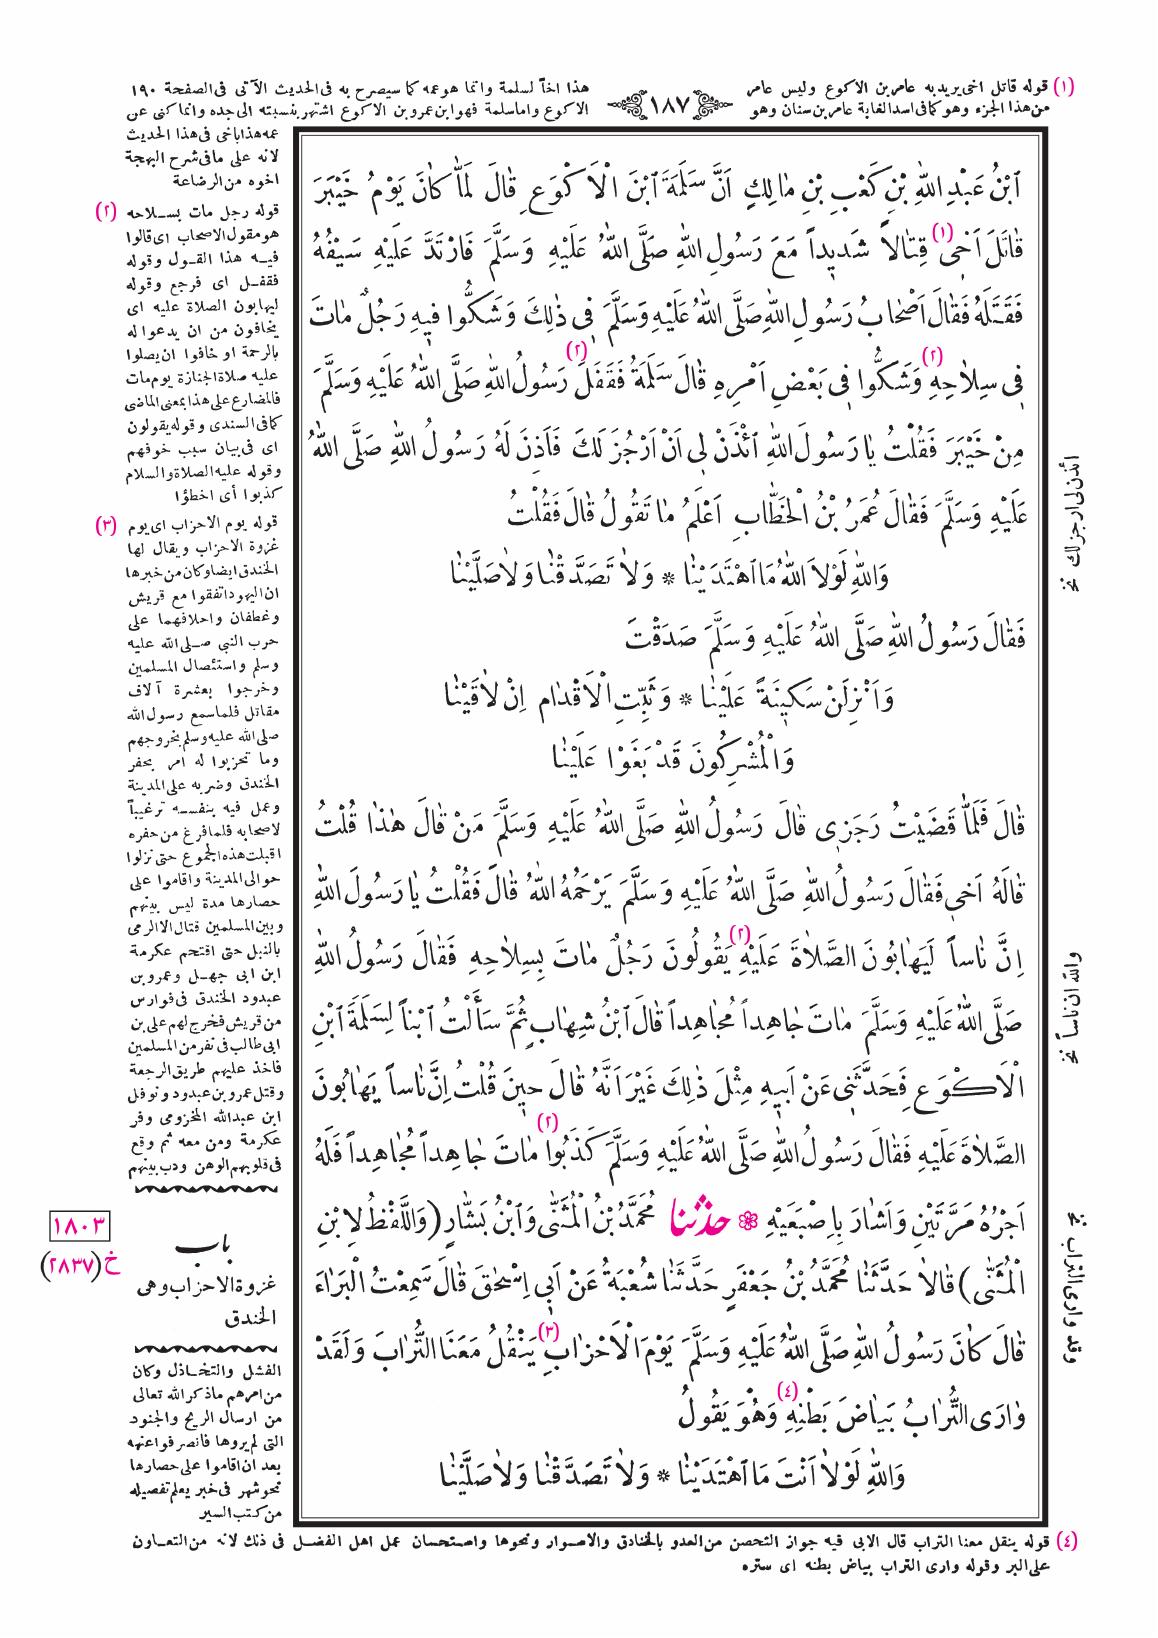 (١) قوله قاتل اخى يريد به عامر بن الاكوع وليس عامر هذا اخاً لسلمة وانما هو عمه كما سيصرح به فى الحديث الآتى فى الصفحة ١٩٠
من هذا الجزء وهو كما فى اسد الغابة عامر بن سنان وهو الاكوع واما سلمة فهو ابن عمرو بن الاكوع اشتهر بنسبته الى جده وانما كنى عن
١٨٧
عمه هذا باخى فى هذا الحديث
لانه على ما فى شرح البهجة
اخوه من الرضاعة
ابْنُ عَبْدِ اللهِ بْنِ كَعْبِ بْنِ مَالِكٍ اَنَّ سَلَمَةَ ابْنَ الْاَكْوَعِ قَالَ لَمَّا كَانَ يَوْمُ خَيْبَرَ
قَاتَلَ اَخِى (١) قِتَالاً شَدِيداً مَعَ رَسُولِ اللهِ صَلَّى اللهُ عَلَيْهِ وَسَلَّمَ فَارْتَدَّ عَلَيْهِ سَيْفُهُ
فَقَتَلَهُ فَقَالَ اَصْحَابُ رَسُولِ اللهِ صَلَّى اللهُ عَلَيْهِ وَسَلَّمَ فِى ذٰلِكَ وَشَكُّوا فِيهِ رَجُلٌ مَاتَ
فِى سِلَاحِهِ (٢) وَشَكُّوا فِى بَعْضِ اَمْرِهِ قَالَ سَلَمَةُ فَقَفَلَ (٢) رَسُولُ اللهِ صَلَّى اللهُ عَلَيْهِ وَسَلَّمَ
مِنْ خَيْبَرَ فَقُلْتُ يَا رَسُولَ اللهِ ائْذَنْ لِى اَنْ اَرْجُزَ لَكَ فَاَذِنَ لَهُ رَسُولُ اللهِ صَلَّى اللهُ
عَلَيْهِ وَسَلَّمَ فَقَالَ عُمَرُ بْنُ الْخَطَّابِ اَعْلَمُ مَا تَقُولُ قَالَ فَقُلْتُ
وَاللهِ لَوْلَا اللهُ مَا اهْتَدَيْنَا * وَلَا تَصَدَّقْنَا وَلَا صَلَّيْنَا
فَقَالَ رَسُولُ اللهِ صَلَّى اللهُ عَلَيْهِ وَسَلَّمَ صَدَقْتَ
وَاَنْزِلَنْ سَكِينَةً عَلَيْنَا * وَثَبِّتِ الْاَقْدَامَ اِنْ لَاقَيْنَا
وَالْمُشْرِكُونَ قَدْ بَغَوْا عَلَيْنَا
قَالَ فَلَمَّا قَضَيْتُ رَجَزِى قَالَ رَسُولُ اللهِ صَلَّى اللهُ عَلَيْهِ وَسَلَّمَ مَنْ قَالَ هٰذَا قُلْتُ
قَالَهُ اَخِى فَقَالَ رَسُولُ اللهِ صَلَّى اللهُ عَلَيْهِ وَسَلَّمَ يَرْحَمُهُ اللهُ قَالَ فَقُلْتُ يَا رَسُولَ اللهِ
اِنَّ نَاساً لَيَهَابُونَ الصَّلَاةَ عَلَيْهِ (٢) يَقُولُونَ رَجُلٌ مَاتَ بِسِلَاحِهِ فَقَالَ رَسُولُ اللهِ
صَلَّى اللهُ عَلَيْهِ وَسَلَّمَ مَاتَ جَاهِداً مُجَاهِداً قَالَ ابْنُ شِهَابٍ ثُمَّ سَأَلْتُ ابْناً لِسَلَمَةَ ابْنِ
الْاَكْوَعِ فَحَدَّثَنِى عَنْ اَبِيهِ مِثْلَ ذٰلِكَ غَيْرَ اَنَّهُ قَالَ حِينَ قُلْتُ اِنَّ نَاساً يَهَابُونَ
الصَّلَاةَ عَلَيْهِ فَقَالَ رَسُولُ اللهِ صَلَّى اللهُ عَلَيْهِ وَسَلَّمَ كَذَبُوا (٢) مَاتَ جَاهِداً مُجَاهِداً فَلَهُ
اَجْرُهُ مَرَّتَيْنِ وَاَشَارَ بِاِصْبَعَيْهِ * حَدَّثَنَا مُحَمَّدُ بْنُ الْمُثَنّٰى وَابْنُ بَشَّارٍ (وَاللَّفْظُ لِابْنِ
الْمُثَنّٰى) قَالَا حَدَّثَنَا مُحَمَّدُ بْنُ جَعْفَرٍ حَدَّثَنَا شُعْبَةُ عَنْ اَبِى اِسْحٰقَ قَالَ سَمِعْتُ الْبَرَاءَ
قَالَ كَانَ رَسُولُ اللهِ صَلَّى اللهُ عَلَيْهِ وَسَلَّمَ يَوْمَ الْاَحْزَابِ (٣) يَنْقُلُ مَعَنَا التُّرَابَ وَلَقَدْ
وَارَى التُّرَابُ بَيَاضَ بَطْنِهِ (٤) وَهُوَ يَقُولُ
وَاللهِ لَوْلَا اَنْتَ مَا اهْتَدَيْنَا * وَلَا تَصَدَّقْنَا وَلَا صَلَّيْنَا
ائذن لى ارجز لك نخ
والله ان ناساً نخ
وقد وارى التراب نخ
(٢) قوله رجل مات بسلاحه
هو مقول الاصحاب اى قالوا
فيه هذا القول وقوله
فقفل اى فرجع وقوله
ليهابون الصلاة عليه اى
يخافون من ان يدعوا له
بالرحمة او خافوا ان يصلوا
عليه صلاة الجنازة يوم مات
فالمضارع على هذا بمعنى الماضى
كما فى السندى وقوله يقولون
اى فى بيان سبب خوفهم
وقوله عليه الصلاة والسلام
كذبوا أى اخطؤا
(٣) قوله يوم الاحزاب اى يوم
غزوة الاحزاب ويقال لها
الخندق ايضا وكان من خبرها
ان اليهود اتفقوا مع قريش
وغطفان واحلافهما على
حرب النبى صلى الله عليه
وسلم واستئصال المسلمين
وخرجوا بعشرة آلاف
مقاتل فلما سمع رسول الله
صلى الله عليه وسلم بخروجهم
وما تحزبوا له امر بحفر
الخندق وضربه على المدينة
وعمل فيه بنفسه ترغيباً
لاصحابه فلما فرغ من حفره
اقبلت هذه الجموع حتى نزلوا
حوالى المدينة واقاموا على
حصارها مدة ليس بينهم
وبين المسلمين قتال الا الرمى
بالنبل حتى اقتحم عكرمة
ابن ابى جهل وعمرو بن
عبدود الخندق فى فوارس
من قريش فخرج لهم على بن
ابى طالب فى نفر من المسلمين
فاخذ عليهم طريق الرجعة
وقتل عمرو بن عبدود ونوفل
ابن عبدالله المخزومى وفر
عكرمة ومن معه ثم وقع
فى قلوبهم الوهن ودب بينهم
١٨٠٣
خ (٢٨٣٧)
باب
غزوة الاحزاب وهى
الخندق
الفشل والتخاذل وكان
من امرهم ما ذكر الله تعالى
من ارسال الريح والجنود
التى لم يروها فانصرفوا عنهه
بعد ان اقاموا على حصارها
نحو شهر فى خبر يعلم تفصيله
من كتب السير
(٤) قوله ينقل معنا التراب قال الابى فيه جواز التحصن من العدو بالخنادق والاسوار ونحوها واستحسان عمل اهل الفضل فى ذلك لانه من التعاون
على البر وقوله وارى التراب بياض بطنه اى ستره